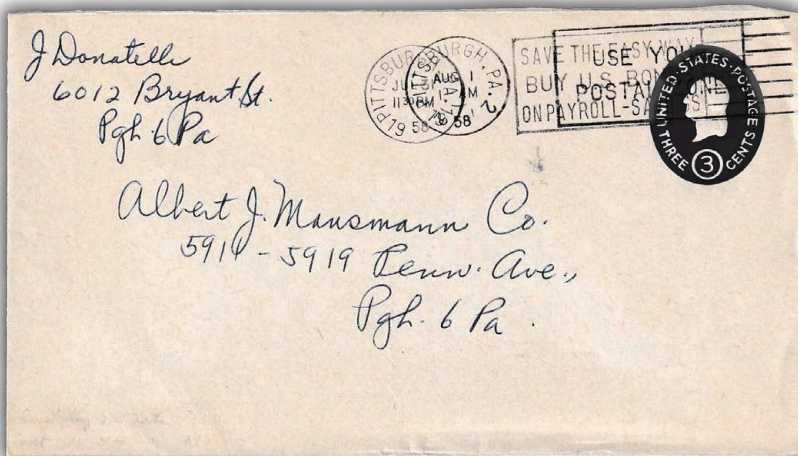 J Donatelli
6012 Bryant St.
Pgh. 6 Pa
PITTSBURGH, PA. 2
AUG 1
AM
1958
PITTSBUR
11 30 PM
1958
SAVE THE EASY WAY
BUY U.S. BON
ON PAYROLL-SA
USE YOU
POSTAL ZONE
UNITED·STATES·POSTAGE
THREE 3 CENTS
Albert J. Mansmann Co.
5911 - 5919 Penn. Ave.,
Pgh. 6 Pa.